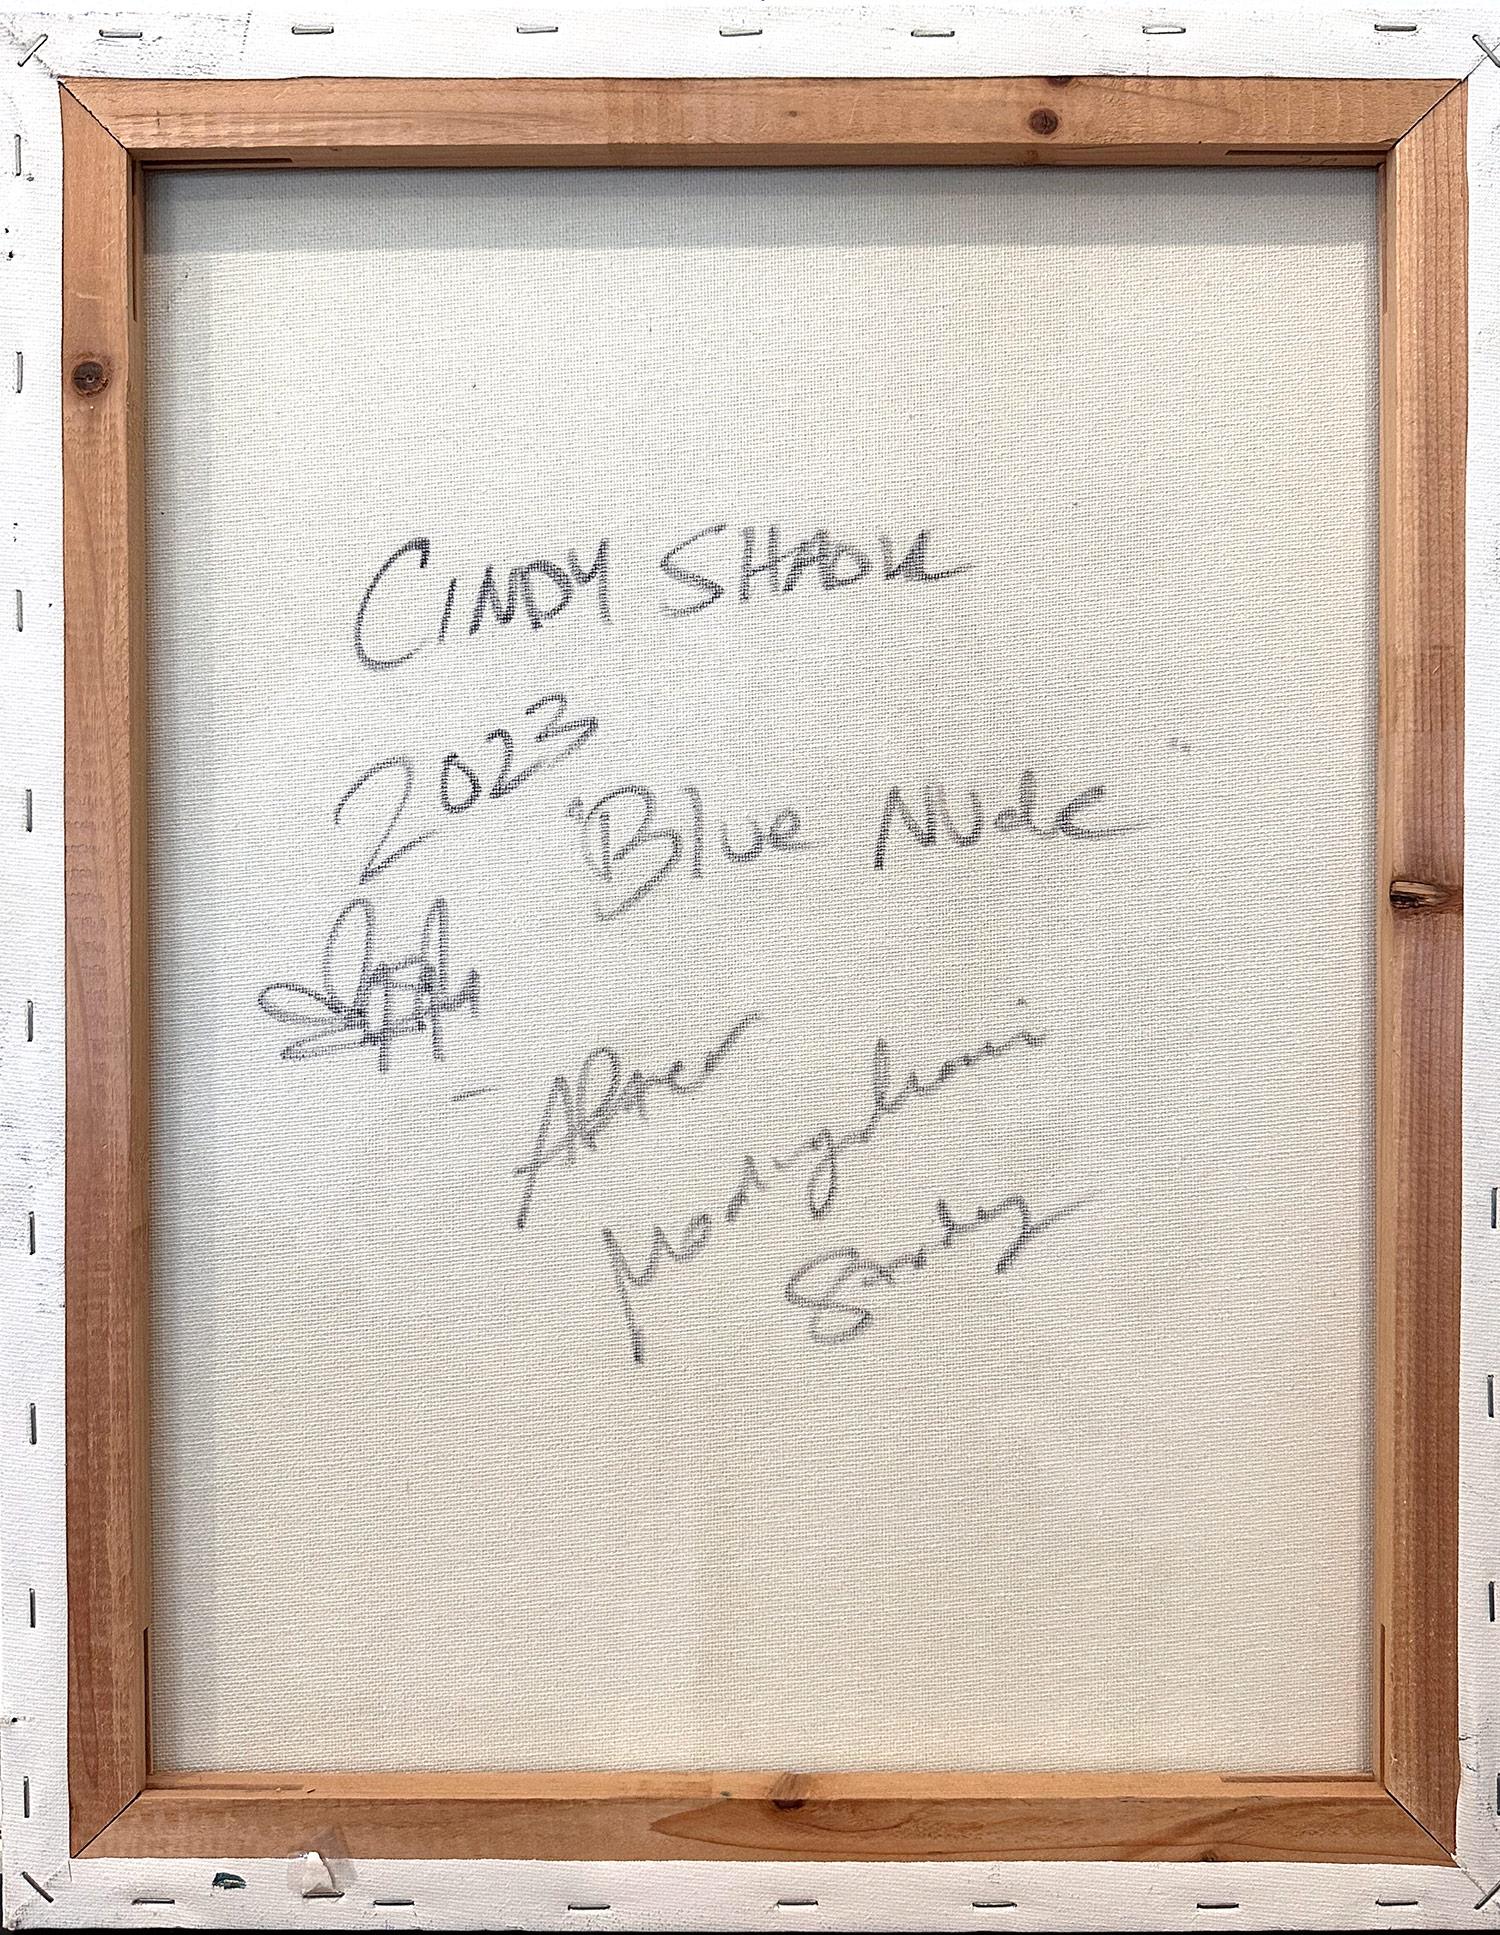 CINDY SHAOK
2023
"Blue Nude"
- After
Modigliani
Study